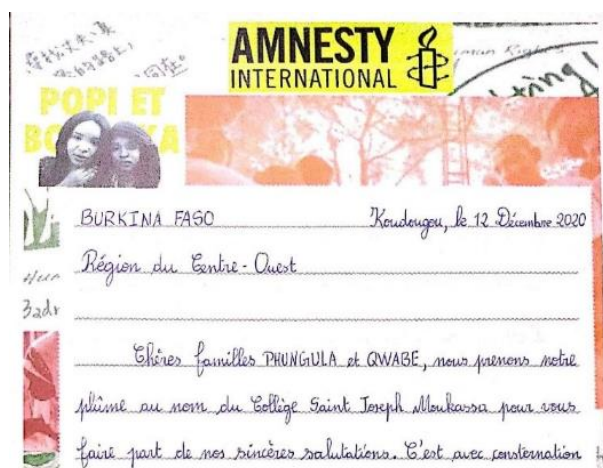 AMNESTY
INTERNATIONAL
POPI ET
BURKINA FASO Koudougou, le 12 Décembre 2020
Région du Centre-Ouest
Chères familles PHUNGULA et QWABE, nous prenons notre
plûme au nom du Collège Saint Joseph Moukassa pour vous
faire part de nos sincères salutations. C'est avec consternation